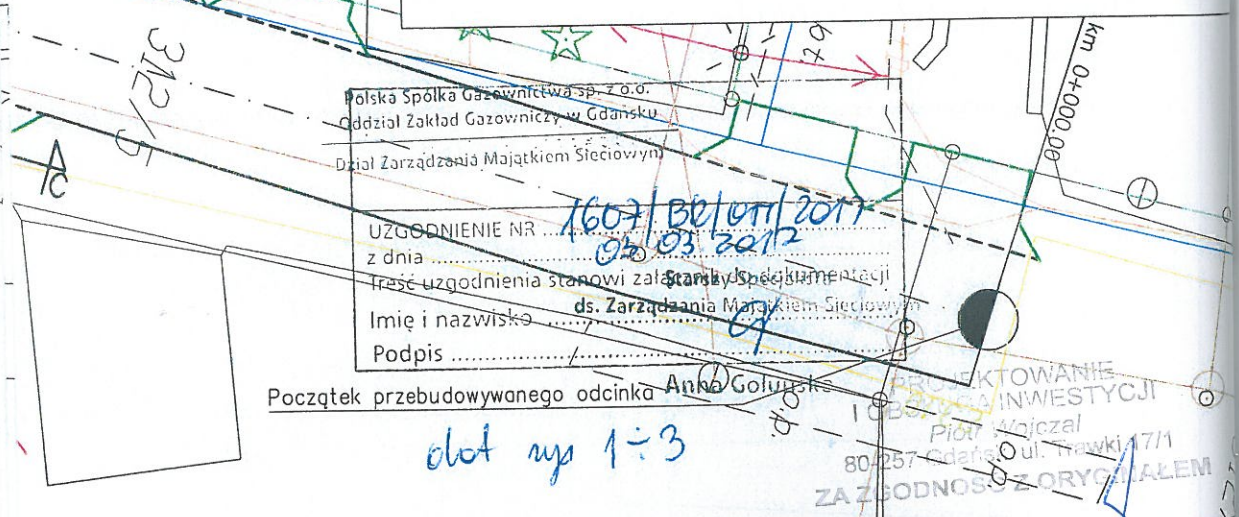 km 0+000,00
312/5
Polska Spółka Gazownictwa sp. z o.o.
Oddział Zakład Gazowniczy w Gdańsku
Dział Zarządzania Majątkiem Sieciowym
UZGODNIENIE NR 1607/BR/OTI/2017
z dnia 03 03 2017
Treść uzgodnienia stanowi załącznik do dokumentacji
Starszy Specjalista
ds. Zarządzania Majątkiem Sieciowym
Imię i nazwisko
Podpis
Anna
Początek przebudowywanego odcinka
dot rys 1÷3
PROJEKTOWANIE
I OBSŁUGA INWESTYCJI
Piotr Wojczal
80-257 Gdańsk ul. Trawki 17/1
ZA ZGODNOŚĆ Z ORYGINAŁEM
o.p.
o.p.